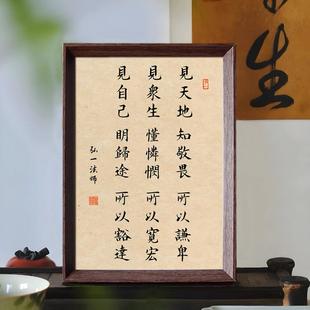 見天地 知敬畏 所以謙卑
見衆生 懂憐憫 所以寬宏
見自己 明歸途 所以豁達
弘一法師
生